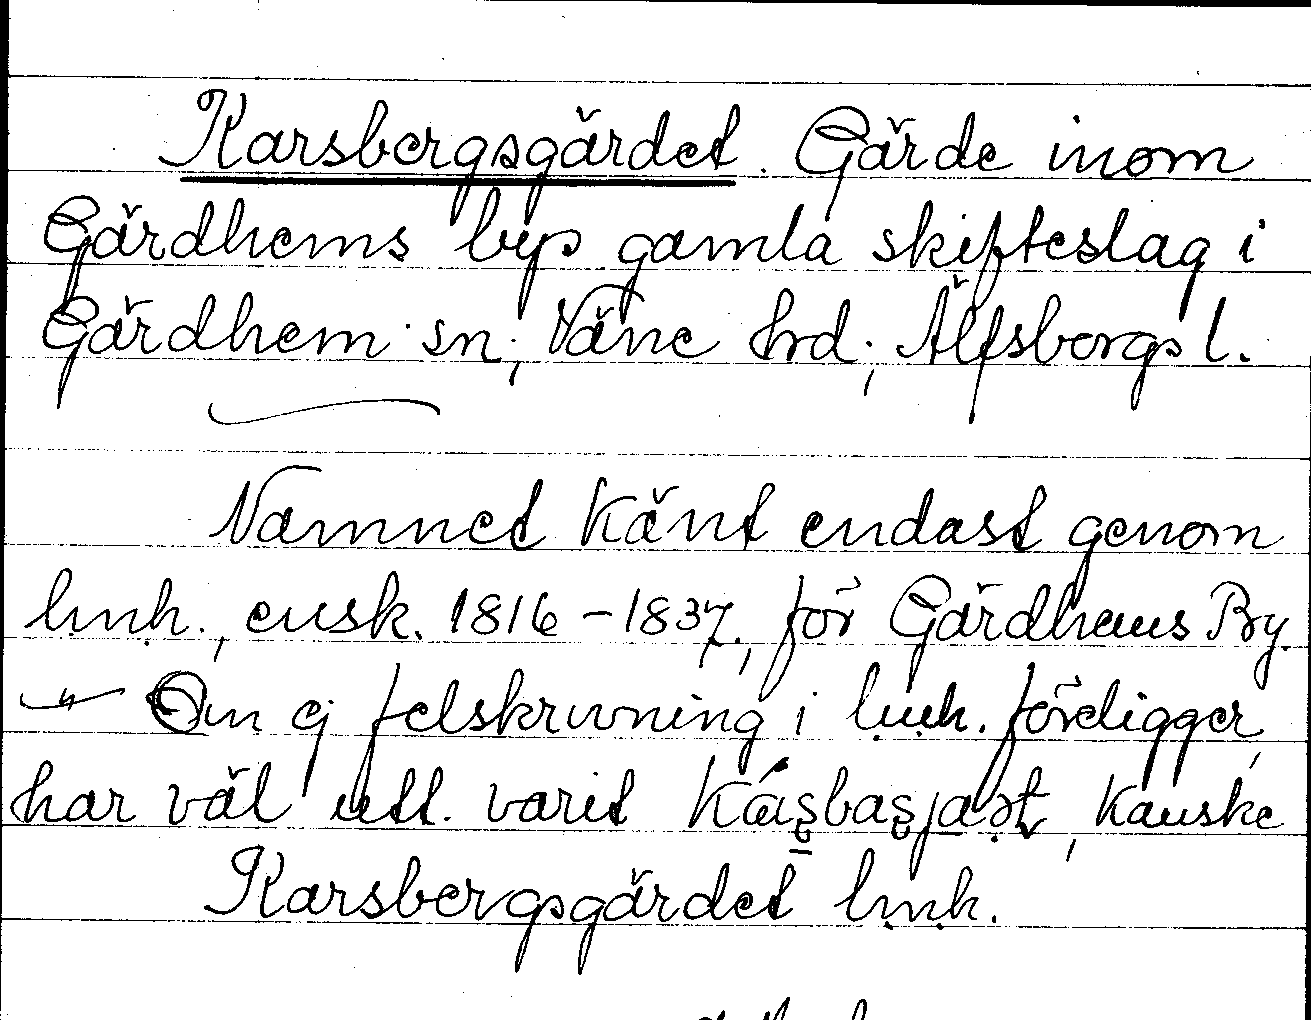 Karsbergsgärdet. Gärde inom
Gärdhems bys gamla skifteslag i
Gärdhem sn, Väne hrd, Älfsborgs l.
Namnet känt endast genom
lmh., ensk. 1816-1837, för Gärdhems By.
Om ej felskrivning i lmh. föreligger,
har väl utt. varit kanske
Karsbergsgärdet lmh.